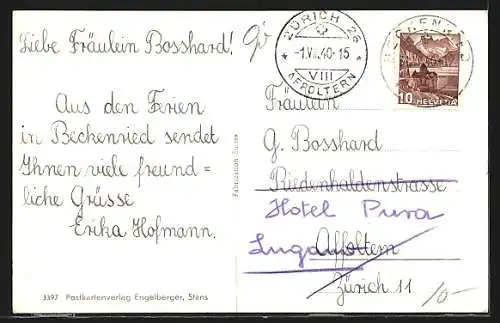 Liebe Fräulein Bosshard!
Aus den Ferien
in Beckenried sendet
Ihnen viele freund=
liche Grüsse
Erika Hofmann.
3397 Postkartenverlag Engelberger, Stans
Fabrication Suisse
ZÜRICH 26
-1.VII.40-15
VIII
AFFOLTERN
BECKENRIED
10 HELVETIA
Fräulein
G. Bosshard
Riedenhaldenstrasse
Hotel Pura
Lugano
Affoltern
Zürich 11
10-